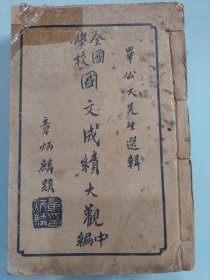 畢公天先生選輯
全國學校國文成績大觀中編
章炳麟題